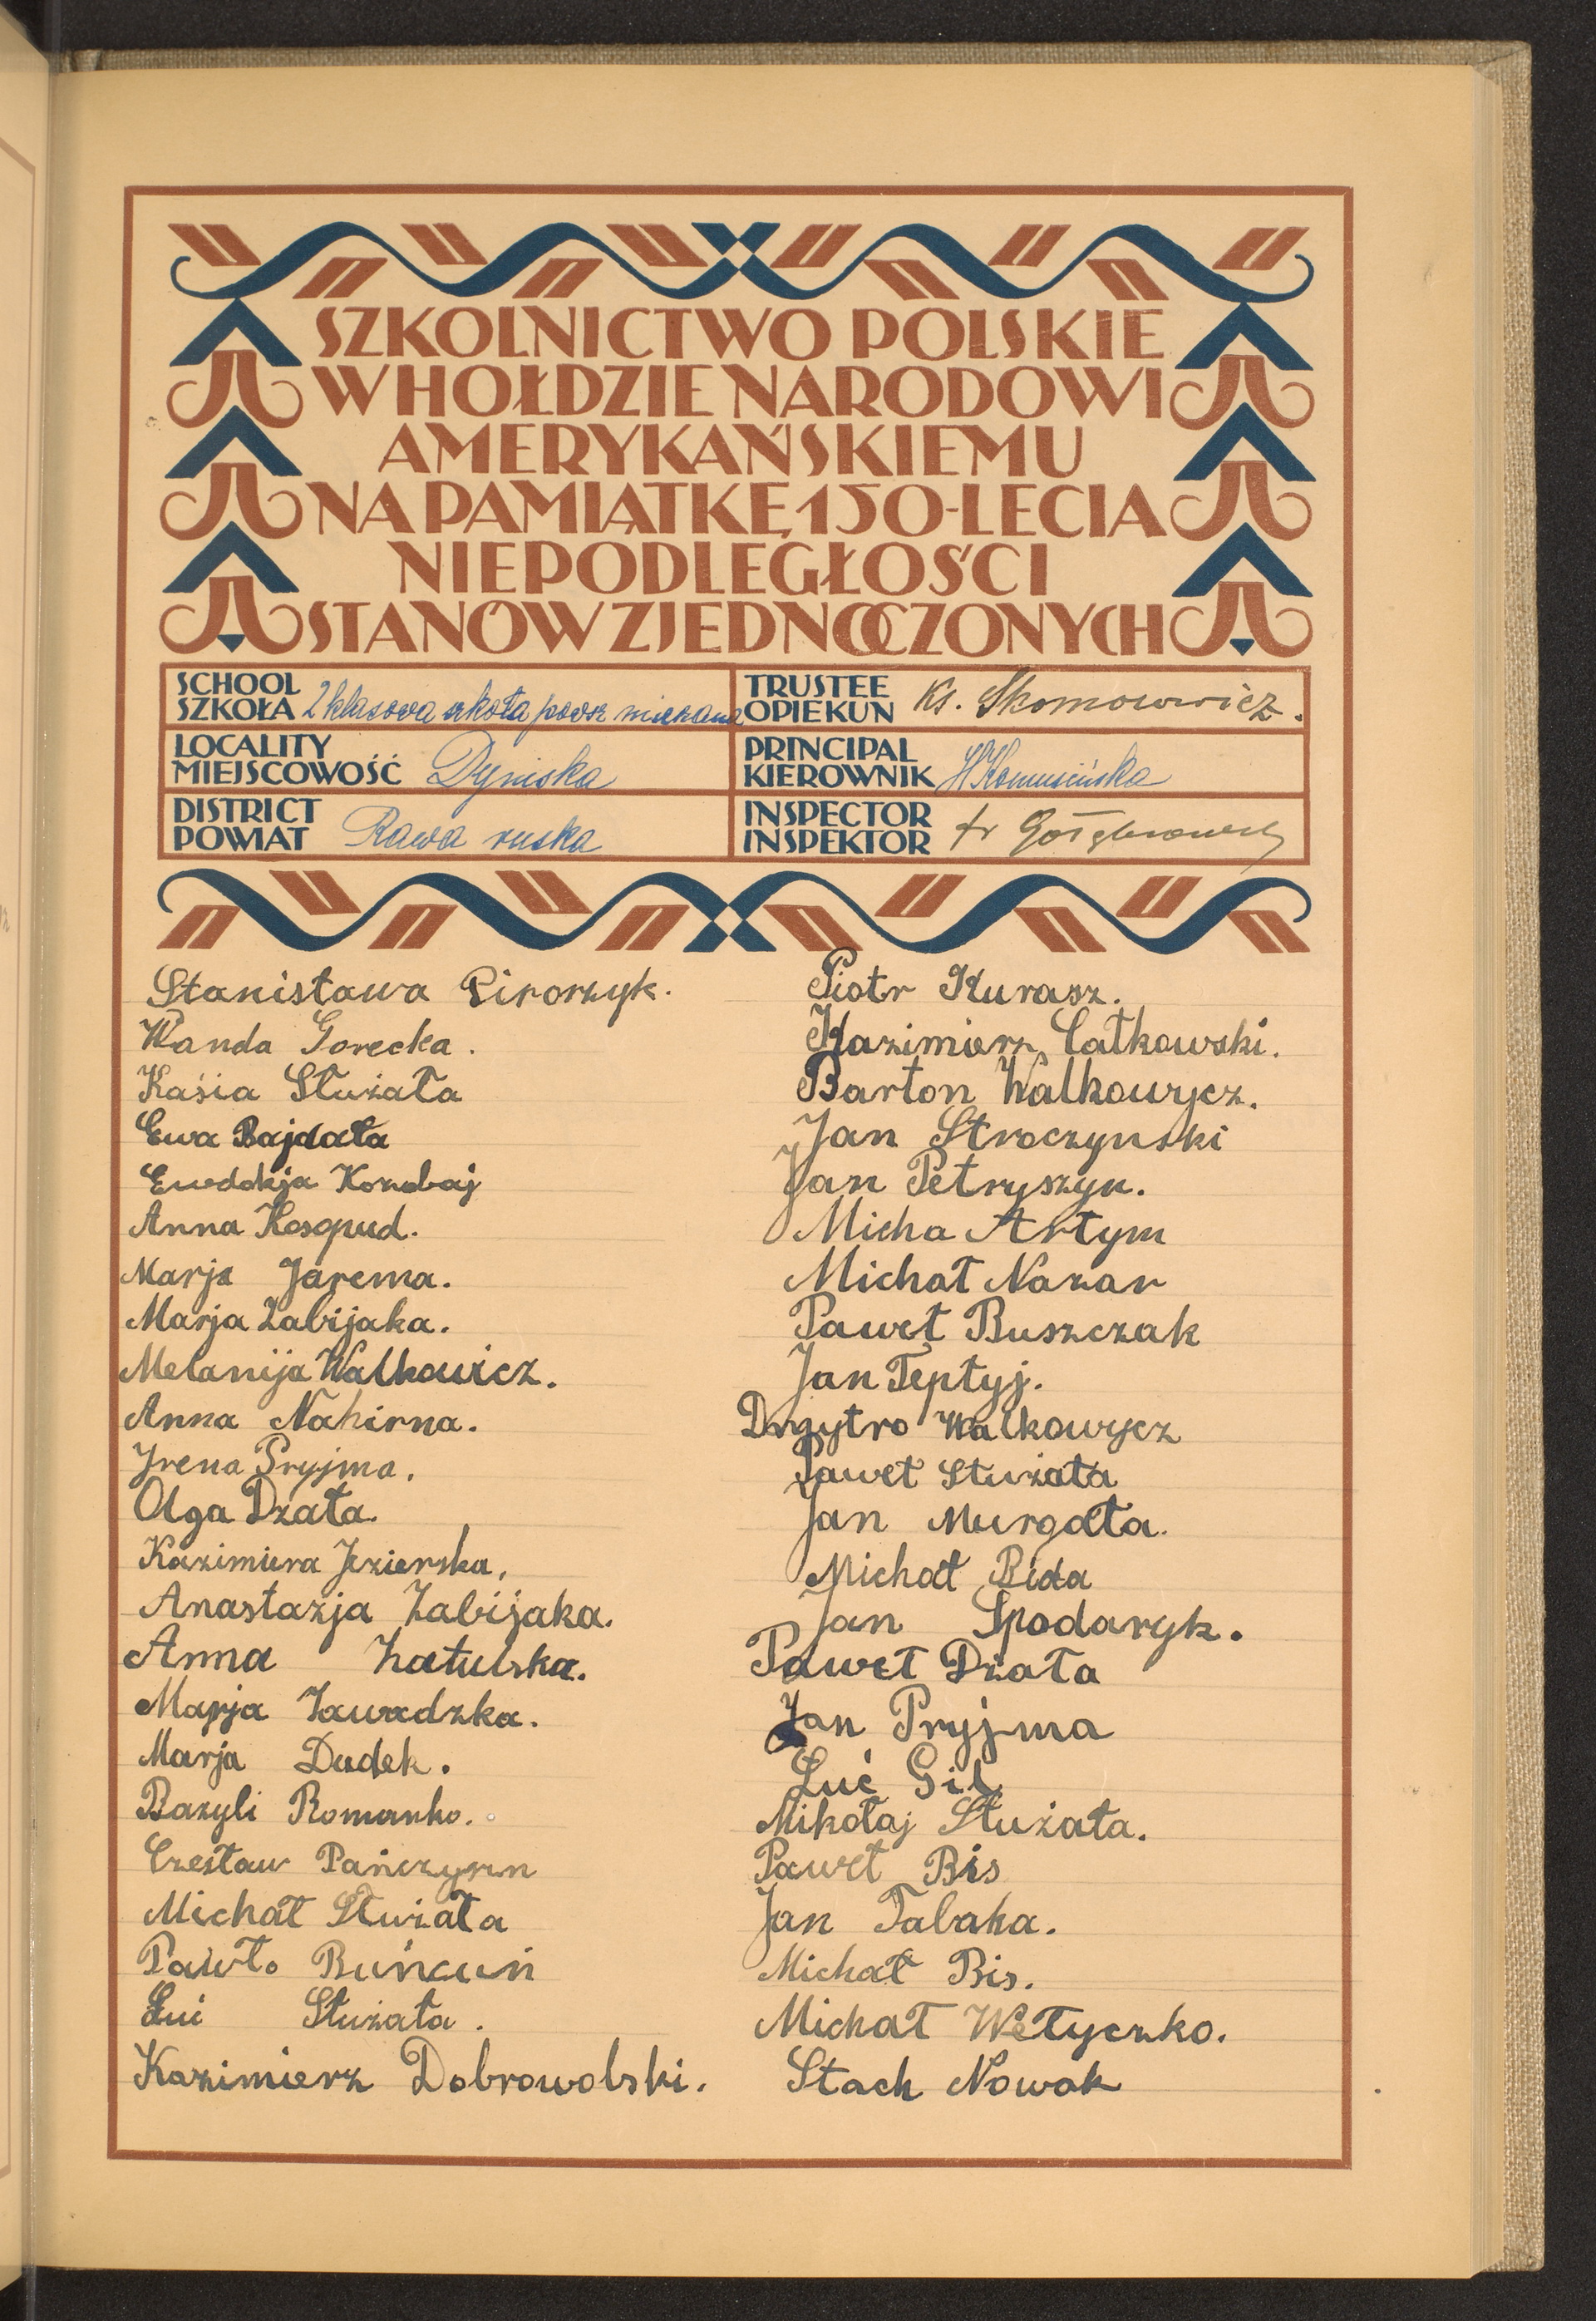 SZKOLNICTWO POLSKIE
W HOŁDZIE NARODOWI
AMERYKAŃSKIEMU
NA PAMIĄTKĘ 150-LECIA
NIEPODLEGŁOŚCI
STANÓW ZJEDNOCZONYCH
SCHOOL
SZKOŁA 2 klasowa szkoła powsz mieszana
TRUSTEE
OPIEKUN Ks. Skomorowicz.
LOCALITY
MIEJSCOWOŚĆ Dyniska
PRINCIPAL
KIEROWNIK
DISTRICT
POWIAT Rawa ruska
INSPECTOR
INSPEKTOR
Stanisława Pirorzyk.
Wanda Gorecka.
Kaśia Służała
Ewa Bajdała
Ewdokja Korobaj
Anna Kosopud.
Marja Jarema.
Marja Zabijaka.
Melanija Walkowicz.
Anna Nahirna.
Irena Pryjma.
Olga Dzała.
Kazimiera Jezierska,
Anastazja Zabijaka.
Anna Zatulska.
Marja Zawadzka.
Marja Dudek.
Bazyli Romanko.
Czesław Pańczyszn
Michał Służała
Pawło Buńcuń
Łuć Służała.
Kazimierz Dobrowolski.
Piotr Kurasz.
Kazimierz Całkowski.
Barton Walkowycz.
Jan Stroczynski
Jan Petryszyn.
Micha Artym
Michał Nazar
Paweł Buszczak
Jan Teptyj.
Dmytro Walkowycz
Paweł Służała
Jan Murgała.
Michał Bida
Jan Spodaryk.
Paweł Dżała
Jan Pryjma
Łuć Gil
Mikołaj Służała.
Paweł Bis
Jan Tabaka.
Michał Bis.
Michał Wełyczko.
Stach Nowak